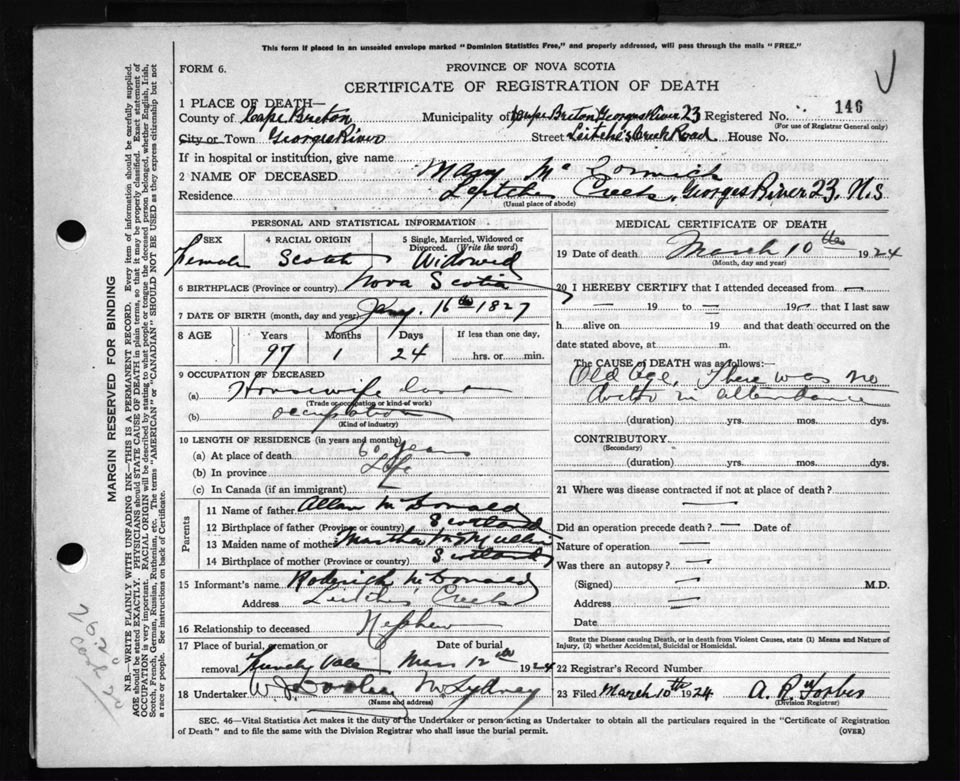 This form if placed in an unsealed envelope marked "Dominion Statistics Free," and properly addressed, will pass through the mails "FREE."
FORM 6.
PROVINCE OF NOVA SCOTIA
CERTIFICATE OF REGISTRATION OF DEATH
1 PLACE OF DEATH—
146
County of Cape Breton Municipality of Cape Breton Georges River 23 Registered No.
(For use of Registrar General only)
City or Town Georges River Street Leitche's Creek Road House No.
If in hospital or institution, give name
2 NAME OF DECEASED Mary Mc Cormick
Residence Leitches Creek, Georges River 23, N.S
(Usual place of abode)
PERSONAL AND STATISTICAL INFORMATION
3 SEX 4 RACIAL ORIGIN 5 Single, Married, Widowed or Divorced. (Write the word)
Female Scotch Widowed
6 BIRTHPLACE (Province or country) Nova Scotia
7 DATE OF BIRTH (month, day and year) Jany. 16th 1827
8 AGE Years Months Days If less than one day,
97 1 24 hrs. or min.
9 OCCUPATION OF DECEASED
(a) Housewife
(Trade or occupation or kind of work)
(b) occupation
(Kind of industry)
10 LENGTH OF RESIDENCE (in years and months)
(a) At place of death 60 years
(b) In province Life
(c) In Canada (if an immigrant)
Parents
11 Name of father Allan McDonald
12 Birthplace of father (Province or country) Scotland
13 Maiden name of mother Martha
14 Birthplace of mother (Province or country) Scotland
15 Informant's name Roderick McDonald
Address Leitches Creek
16 Relationship to deceased Nephew
17 Place of burial, cremation or Date of burial
removal Mar 12th 1924
18 Undertaker N Sydney
(Name and address)
MEDICAL CERTIFICATE OF DEATH
19 Date of death March 10th 1924
(Month, day and year)
20 I HEREBY CERTIFY that I attended deceased from —
— 19 — to — 19 — that I last saw
h alive on 19 and that death occurred on the
date stated above, at m.
The CAUSE OF DEATH was as follows:
Old Age, There was no
doctor in attendance
(duration) yrs. mos. dys.
CONTRIBUTORY
(Secondary)
(duration) yrs. mos. dys.
21 Where was disease contracted if not at place of death?
—
Did an operation precede death? — Date of
Nature of operation —
Was there an autopsy? —
(Signed) — M.D.
Address —
Date
State the Disease causing Death, or in death from Violent Causes, state (1) Means and Nature of Injury, (2) whether Accidental, Suicidal or Homicidal.
22 Registrar's Record Number
23 Filed March 10th 1924 A. R. Forbes
(Division Registrar)
SEC. 46—Vital Statistics Act makes it the duty of the Undertaker or person acting as Undertaker to obtain all the particulars required in the "Certificate of Registration
of Death" and to file the same with the Division Registrar who shall issue the burial permit.
(OVER)
MARGIN RESERVED FOR BINDING
N.B.—WRITE PLAINLY WITH UNFADING INK—THIS IS A PERMANENT RECORD. Every item of information should be carefully supplied.
AGE should be stated EXACTLY. PHYSICIANS should STATE CAUSE OF DEATH in plain terms, so that it may be properly classified. Exact statement of
OCCUPATION is very important. RACIAL ORIGIN will be described by stating to what people or tongue the deceased person belonged, whether English, Irish,
Scotch, French, German, Russian, Ruthenian, etc. The terms "AMERICAN" or "CANADIAN" SHOULD NOT BE USED as they express citizenship but not
a race or people. See instructions on back of Certificate.